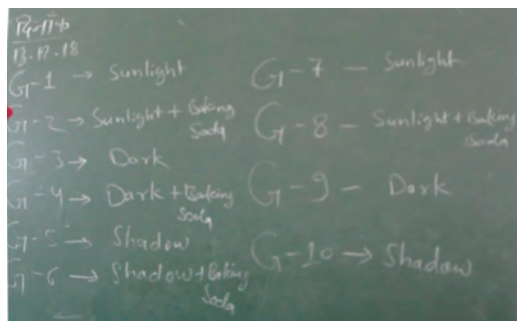 13.12.18
G-1 → Sunlight
G-2 → Sunlight + Baking
Soda
G-3 → Dark
G-4 → Dark + Baking
Soda
G-5 → Shadow
G-6 → Shadow + Baking
Soda
G-7 — Sunlight
G-8 — Sunlight + Baking
Soda
G-9 — Dark
G-10 → Shadow